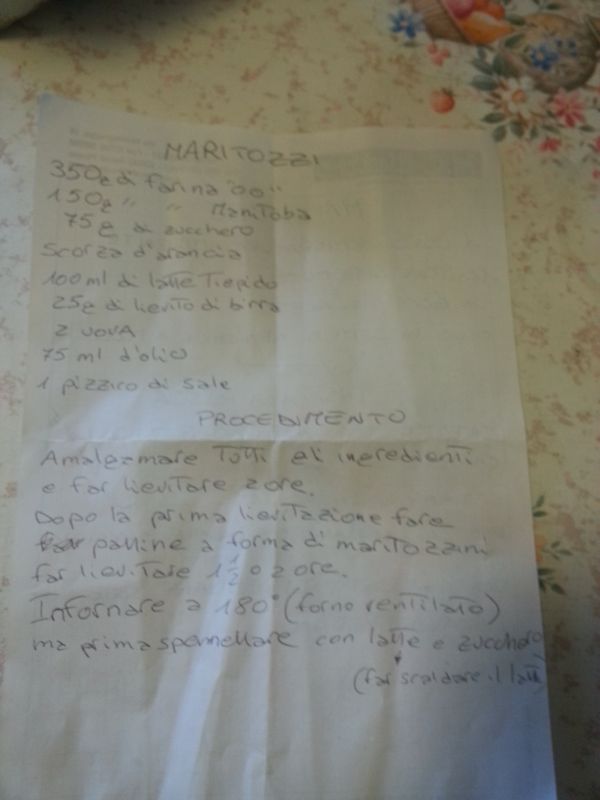 MARITOZZI
350g di farina "00"
150g " " Manitoba
75g di zucchero
Scorza d'arancia
100 ml di latte Tiepido
25g di lievito di birra
2 uova
75 ml d'olio
1 pizzico di sale
PROCEDIMENTO
Amalgamare Tutti gli ingredienti
e far lievitare 2 ore.
Dopo la prima lievitazione fare
palline a forma di maritozzini
far lievitare 1 1/2 o 2 ore.
Infornare a 180° (forno ventilato)
ma prima spennellare con latte e zucchero
(far scaldare il latte)